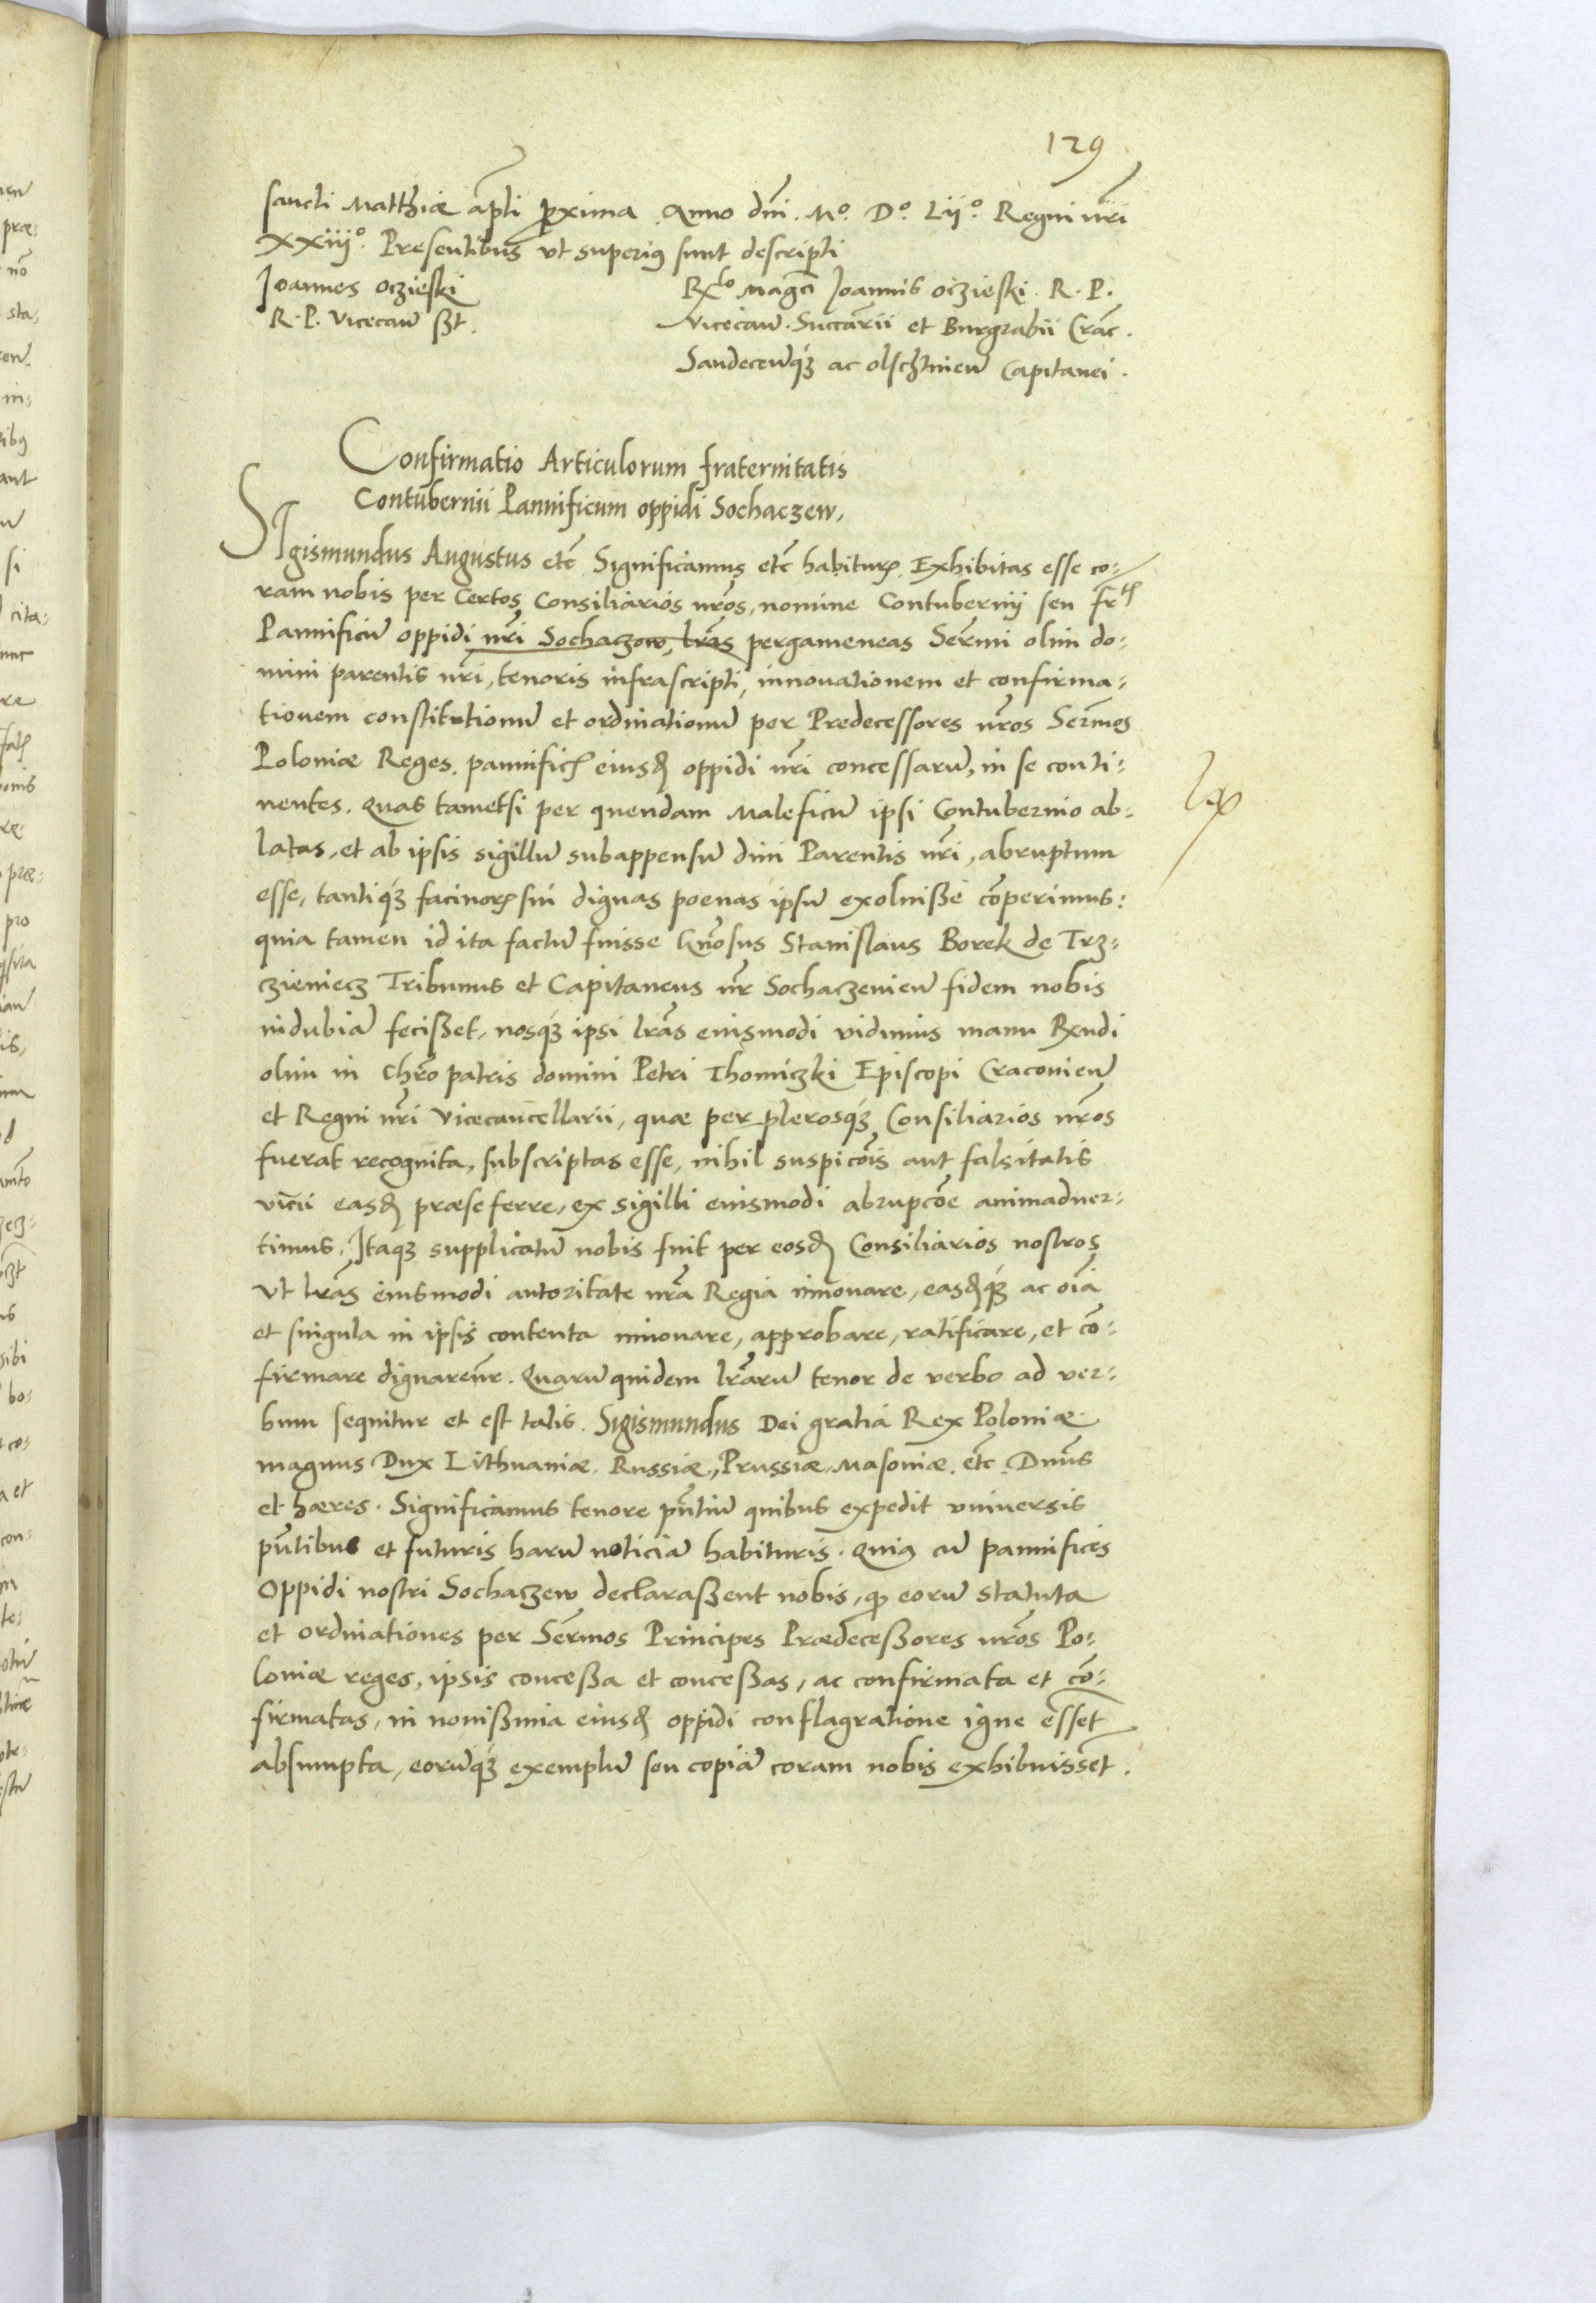 129
sancti Matthiæ apłi proxima. Anno dñi. Mº. Dº. Lijº. Regni nři
XXiijº. Presentibus vt superius sunt descripti
Joannes Oczieski
R. P. Vicecan̄ sst.
Rx̄lo Magci Joannis Oczieski. R. P.
Vicecan̄. Succarii et Burgrabii Crac̄.
Sandecen̄qȝ ac olschtinen̄ Capitanei.
Confirmatio Articulorum fraternitatis
Contubernii Pannificum oppidi Sochaczew,
SIgismundus Augustus etc̄ Significamus etc̄ habitur. Exhibitas esse co-
ram nobis per Certos Consiliarios nr̄os, nomine Contubernij seu frtis
Pannificū oppidi nr̄i Sochaczow, lr̄as pergameneas Ser̄mi olim do-
mini parentis nr̄i, tenoris infrascripti, innouationem et confirma-
tionem constitutionū et ordinationū per Predecessores nr̄os Ser̄mos
Poloniæ Reges, pannific eiusd oppidi nr̄i concessarū, in se conti-
nentes. Quas tametsi per quendam Maleficū ipsi Contubernio ab-
latas, et ab ipsis sigillū subappensū dīni Parentis nr̄i, abruptum
esse, tantiqȝ facinor sui dignas poenas ipsū exoluisse cōperimus:
quia tamen id ita factū fuisse Gn̄osus Stanislaus Borek de Trz-
czieniecz Tribunus et Capitaneus nr̄ Sochaczeuien̄ fidem nobis
indubiā fecisset, nosqȝ ipsi lr̄as eiusmodi vidimus manu Rx̄ndi
olim in Chr̄o patris domini Petri Thomiczki Episcopi Craconien̄
et Regni nr̄i Vicecancellarii, quæ per plerosqȝ Consiliarios nr̄os
fuerat recognita, subscriptas esse, nihil suspicōis aut falsitatis
vicii easd præse ferre, ex sigilli eiusmodi abrupcōe animaduer-
timus. Itaqȝ supplicatū nobis fuit per eosd Consiliarios nostros
vt lr̄as eiusmodi autoritate nr̄a Regia innouare, easdqȝ ac oīa
et singula in ipsis contenta innouare, approbare, ratificare, et cō-
firmare dignarem̄r. Quarū quidem lr̄arū tenor de verbo ad ver-
bum sequitur et est talis. Sigismundus Dei gratia Rex Poloniæ
magnus Dux Lithuaniæ. Russiæ, Prussiæ, Masouiæ. etc̄. Dn̄us
et hæres. Significamus tenore pn̄tiū quibus expedit vniuersis
pn̄tibus et futuris harū noticiā habituris. Quia cū pannifices
Oppidi nostri Sochaczew declarassent nobis, qp eorū statuta
et ordinationes per Ser̄mos Principes Prædecessores nr̄os Po-
loniæ reges, ipsis concessa et concessas, ac confirmata et cō-
firmatas, in nouissima eiusd oppidi conflagratione igne esset
absumpta, eorūqȝ exemplū seu copiā coram nobis exhibuissēt.